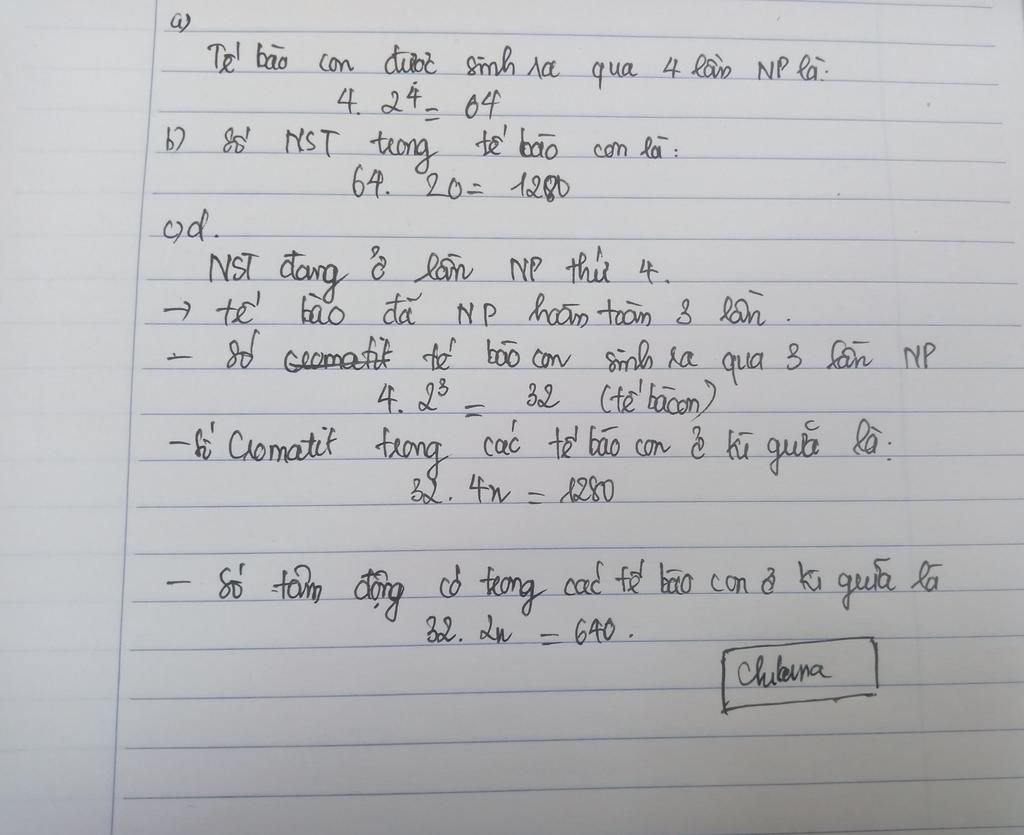 a)
Tế bào con được sinh ra qua 4 lần NP là:
4. 2⁴ = 64
b) Số NST trong tế bào con là:
64. 20 = 1280
c)d.
NST đang ở lần NP thứ 4.
→ tế bào đã NP hoàn toàn 3 lần.
- Số tế bào con sinh ra qua 3 lần NP
4. 2³ = 32 (tế bào con)
- Số Cromatit trong các tế bào con ở kì giữa là:
32. 4n = 1280
- Số tâm động có trong các tế bào con ở kì giữa là
32. 2n = 640.